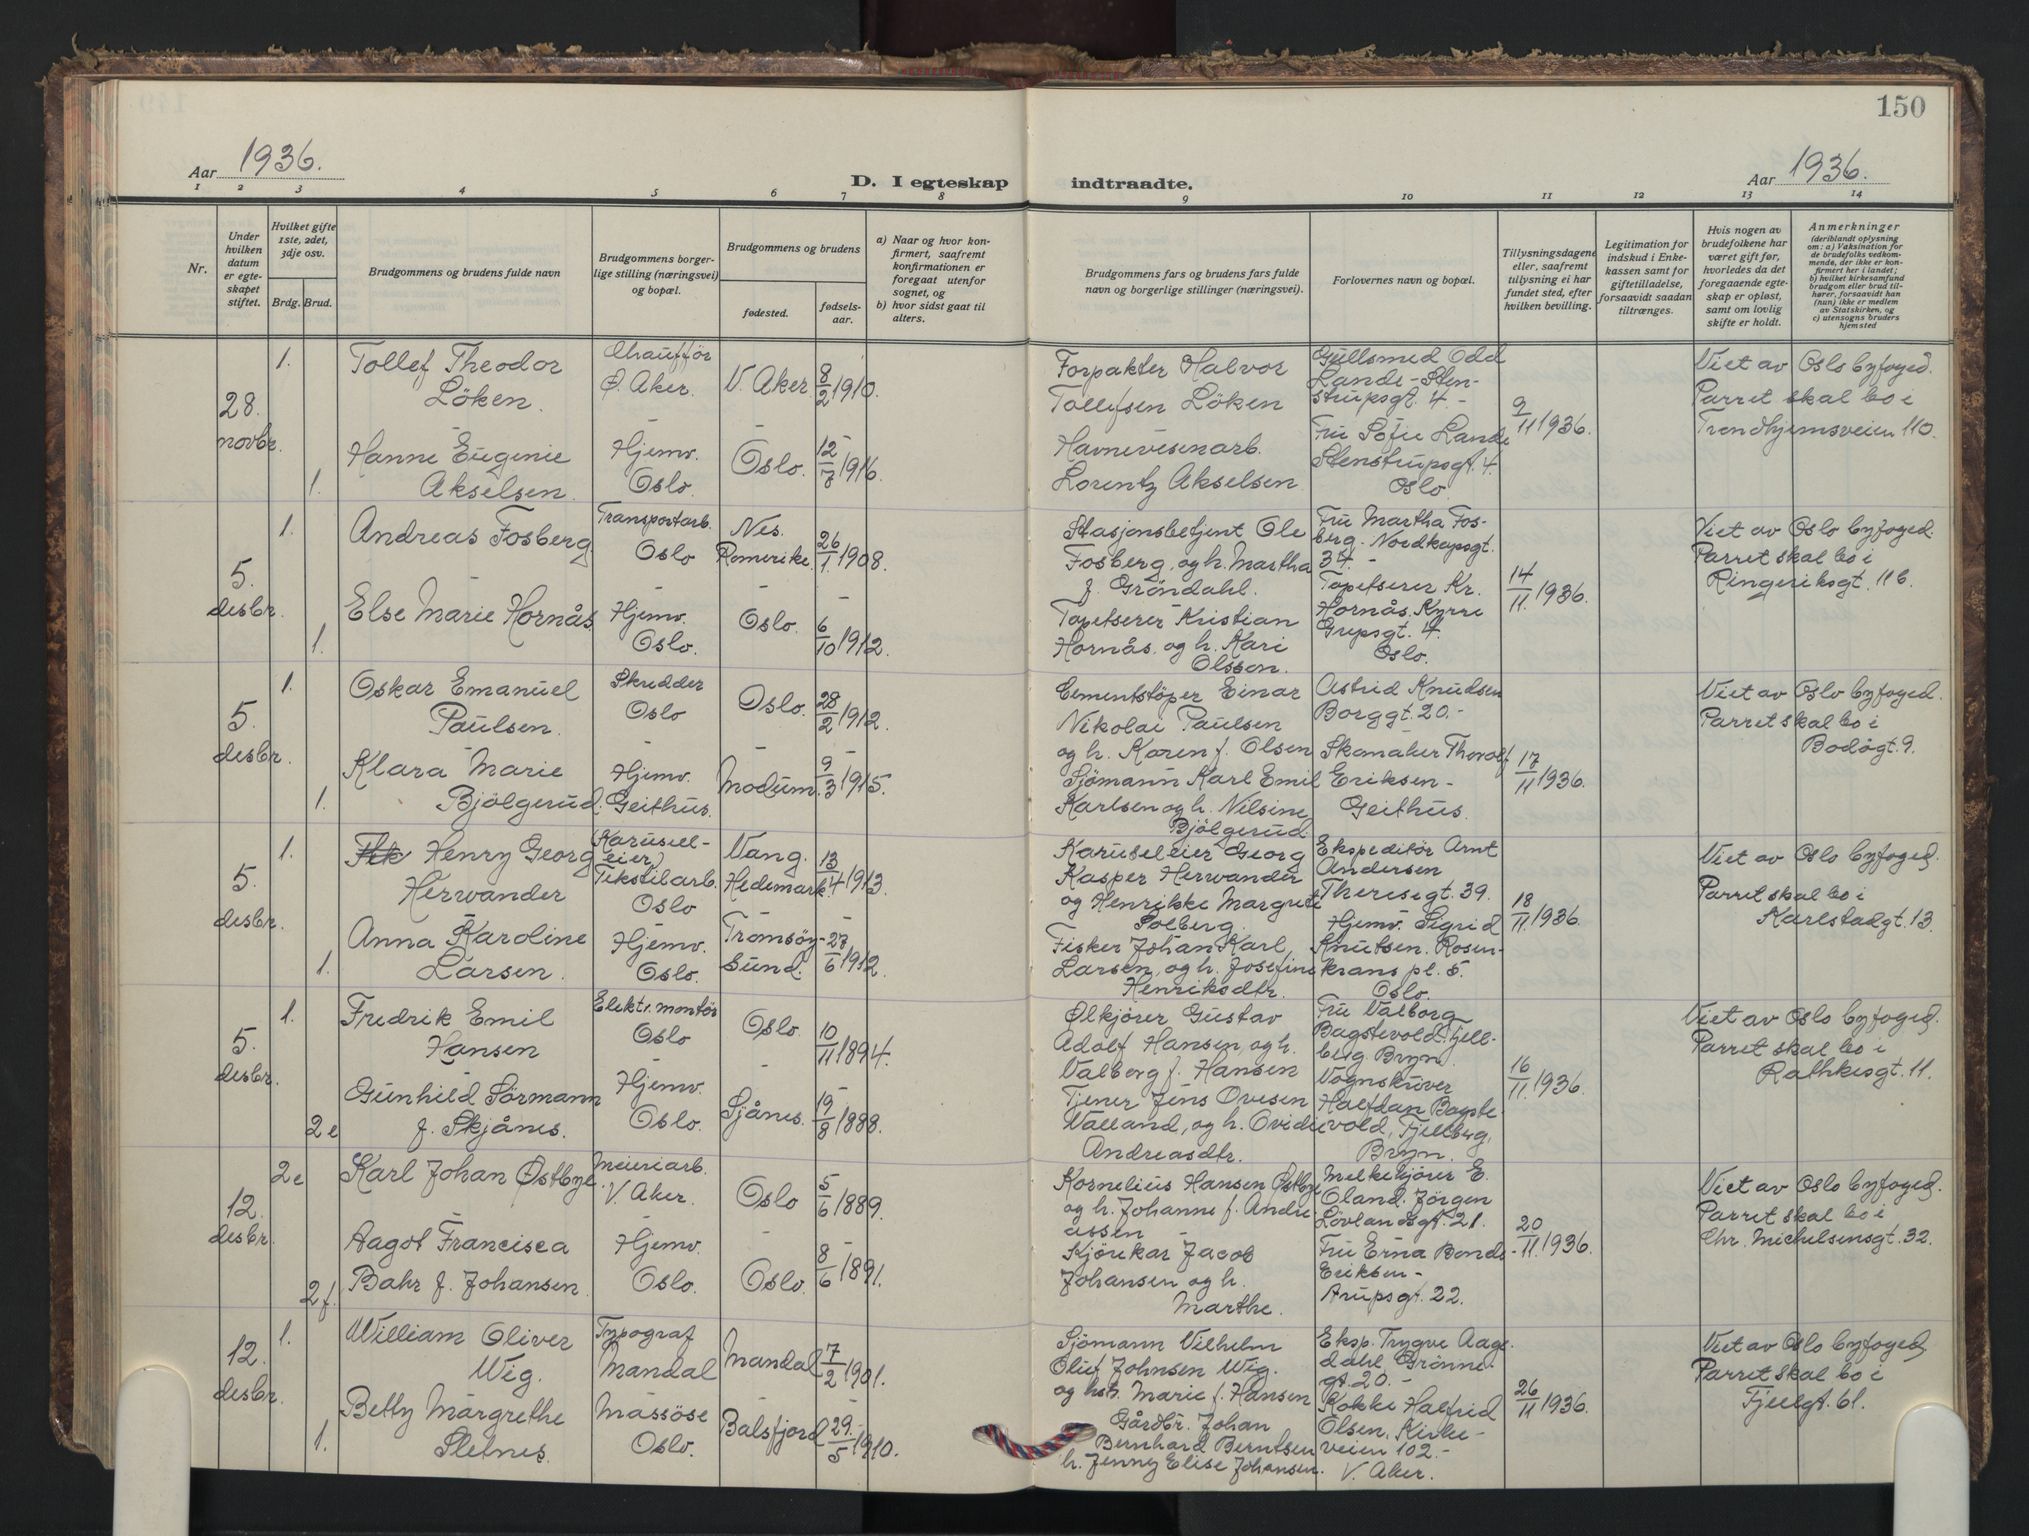 150
Aar 1936.
D. I egteskap indtraadte.
Aar 1936.
1 2 3 4 5 6 7 8 9 10 11 12 13 14
Nr.
Under hvilken datum er egte-skapet stiftet.
Hvilket gifte 1ste, 2det, 3dje osv.
Brdg. Brud.
Brudgommens og brudens fulde navn
Brudgommens borger-lige stilling (næringsvei) og bopæl.
Brudgommens og brudens
fødested.
fødsels-aar.
a) Naar og hvor kon-firmert, saafremt konfirmationen er foregaat utenfor sognet, og
b) hvor sidst gaat til alters.
Brudgommens fars og brudens fars fulde navn og borgerlige stillinger (næringsvei).
Forlovernes navn og bopæl.
Tillysningsdagene eller, saafremt tillysning ei har fundet sted, efter hvilken bevilling.
Legitimation for indskud i Enke-kassen samt for giftetilladelse, forsaavidt saadan tiltrænges.
Hvis nogen av brudefolkene har været gift før, hvorledes da det foregaaende egte-skap er opløst, samt om lovlig skifte er holdt.
Anmerkninger
(deriblandt oplysning om: a) Vaksination for de brudefolks vedkom-mende, der ikke er kon-firmert her i landet; b) hvilket kirkesamfund brudgom eller brud til-hører, forsaavidt han (nun) ikke er medlem av Statskirken, og c) utensogns bruders hjemsted
28. novbr.
1.
Tollef Theodor
Löken.
Chauffør
Ø. Aker.
V. Aker
8/2 1910.
Forpakter Halvor
Tollefsen Löken
Gullsmed Odd
Lande - Sten-
strupsgt. 4. -
9/11 1936.
Viet av Oslo byfoged.
Parret skal bo i
Trondhjemsveien 110.
1.
Hanne Eugenie
Akselsen.
Hjemv.
Oslo.
Oslo.
12/7 1916
Havnevesenarb.
Lorentz Akselsen
Fru Sofie Lande
Stenstrupsgt. 4.
Oslo.
5. desbr.
1.
Andreas Fosberg.
Transportarb.
Oslo
Nes.
Romerike.
26/1 1908.
Stasjonsbetjent Ole
Fosberg, og h. Martha
f. Gröndahl.
Fru Martha Fos-
berg. Nordkapsgt.
34. -
14/11 1936.
Viet av Oslo byfoged.
Parret skal bo i
Ringeriksgt. 11 b.
1.
Else Marie Hornås
Hjemv.
Oslo.
Oslo.
6/10 1912.
Tapetserer Kristian
Hornås. og h. Kari
Olsson.
Tapetserer Kr.
Hornås. Kyrre
Grepsgt. 4.
Oslo.
5. desbr.
1.
Oskar Emanuel
Paulsen.
Skredder
Oslo
Oslo.
28/2 1912.
Cementstøper Einar
Nikolai Paulsen
og h. Karen f. Olsen
Astrid Knudsen
Borggt. 20. -
17/11 1936.
Viet av Oslo byfoged.
Parret skal bo i
Bodögt. 9.
1.
Klara Marie
Bjölgerud.
Hjemv.
Geithus.
Modum.
9/3 1915.
Sjömann Karl Emil
Karlsen og h. Nilsine
Bjölgerud.
Skomaker Thorolf
Eriksen -
Geithus.
5. desbr.
1.
Henry Georg
Herwander
(Karusell-
eier)
Tekstilarb.
Oslo
Vang.
Hedemark.
13/4 1913.
Karuseleier Georg
Kasper Herwander
og Henrikke Margrete
Solberg.
Ekspeditör Arnt
Andersen
Theresegt. 39.
18/11 1936.
Viet av Oslo byfoged.
Parret skal bo i
Karlstadgt. 13.
1.
Anna Karoline
Larsen.
Hjemv.
Oslo.
Tromsöy-
sund.
27/6 1912.
Fisker Johan Karl
Larsen, og h. Josefine
Henriksdtr.
Hjemv. Sigrid
Knutsen. Rosen-
krans pl. 5.
Oslo.
5. desbr.
1.
Fredrik Emil
Hansen
Elektr. montör
Oslo
Oslo.
10/11 1894.
Ölkjörer Gustav
Adolf Hansen, og h.
Valborg f. Hansen
Fru Valborg
Bagstevold. Fjell-
berg. Bryn.
16/11 1936.
Viet av Oslo byfoged.
Parret skal bo i
Rathkesgt. 11.
2e
Gunhild Sörmann
f. Skjånes.
Hjemv.
Oslo.
Sjånes.
19/8 1888.
Tjener Jens Ovesen
Valland, og h. Ovidie
Andreasdtr.
Vognskriver
Halfdan Bagste-
vold, Fjellberg,
Bryn.
12. desbr.
2e
Karl Johan Østbye.
Meieriarb.
V. Aker.
Oslo
5/6 1889.
Kornelius Hansen Østbye
og h. Johanne f. Andre
assen
Melkekjörer E.
Öland. Jörgen
Lövlandsgt. 21.
20/11 1936.
Viet av Oslo byfoged.
Parret skal bo i
Chr. Michelsensgt. 32.
2f.
Aagot Francisca
Bahr f. Johansen.
Hjemv.
Oslo.
Oslo.
8/6 1891.
Kjörekar Jacob
Johansen og h.
Marthe.
Fru Erna Bonde-
Eriksen -
Arupsgt. 22.
12. desbr.
1.
William Oliver
Wig.
Typograf
Mandal
Mandal
7/2 1901.
Sjömann Vilhelm
Oluf Johnsen Wig.
og hst. Marie f. Hansen
Eksp. Trygve Aage
dahl Grönne-
gt. 20. -
26/11 1936.
Viet av Oslo byfoged.
Parret skal bo i
Fjellgt. 61.
1.
Betty Margrethe
Sletnes.
Massöse
Oslo.
Balsfjord
29/5 1910.
Gårdbr. Johan
Bernhard Berntsen
h. Jenny Elise Johansen.
Kokke Halfrid
Olsen, Kirke-
veien 102. -
V. Aker.